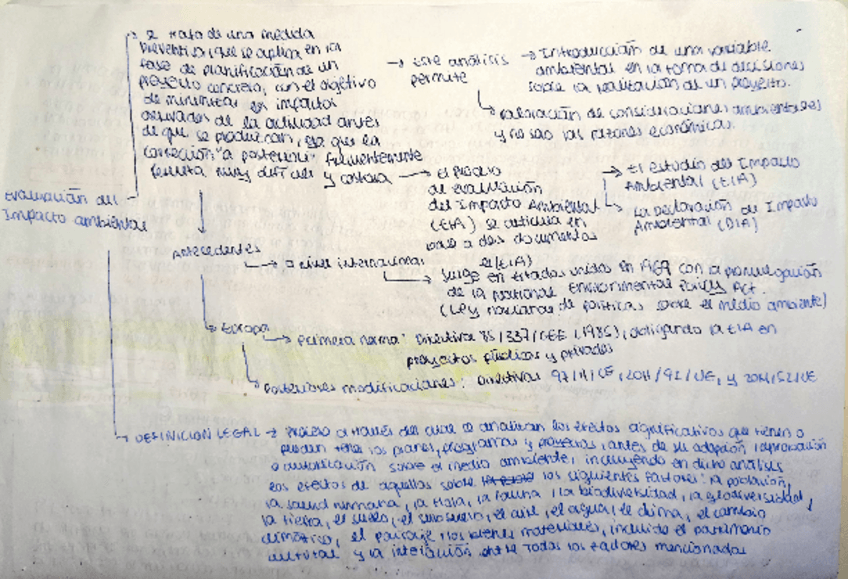 Se trata de una medida
preventiva, que se aplica en la
fase de planificación de un
proyecto concreto, con el objetivo
de minimizar los impactos
derivados de la actividad antes
de que se produzcan, ya que la
corrección "a posteriori" frecuentemente
resulta muy difícil y costosa
→ Este análisis
permite
→ Introducción de una variable
ambiental en la toma de decisiones
sobre la realización de un proyecto.
→ Valoración de consideraciones ambientales
y no solo las razones económicas.
→ El proceso
de evaluación
del Impacto Ambiental
(EIA) se articula en
base a dos documentos
→ El estudio del Impacto
Ambiental (EIA)
→ La Declaración de Impacto
Ambiental (DIA)
Evaluación del
Impacto ambiental
Antecedentes
→ A nivel internacional
el (EIA)
→ Surge en Estados Unidos en 1969 con la promulgación
de la National Environmental Policy Act.
(Ley nacional de políticas sobre el medio ambiente)
→ Europa
→ Primera norma: Directiva 85/337/CEE (1985), obligando la EIA en
proyectos públicos y privados
→ Posteriores modificaciones: Directivas 97/11/CE, 2011/92/UE, y 2014/52/UE
→ DEFINICION LEGAL → Proceso a través del cual se analizan los efectos significativos que tienen o
pueden tener los planes, programas y proyectos, antes de su adopción, aprobación
o autorización sobre el medio ambiente, incluyendo en dicho análisis
los efectos de aquellos sobre los siguientes factores: la población,
la salud humana, la flora, la fauna, la biodiversidad, la geodiversidad,
la tierra, el suelo, el subsuelo, el aire, el agua, el clima, el cambio
climático, el paisaje, los bienes materiales, incluido el patrimonio
cultural y la interacción entre todos los factores mencionados